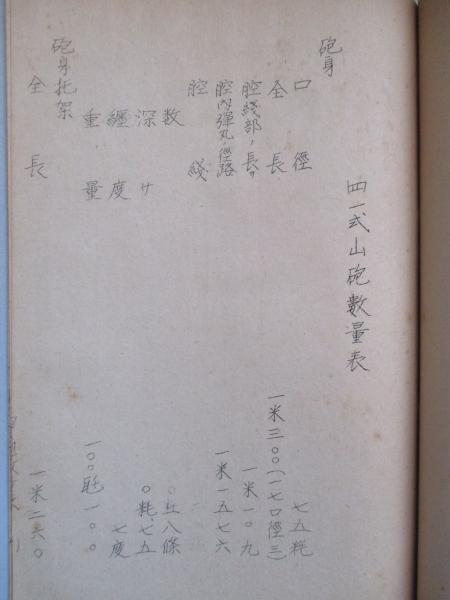 四一式山砲數量表
砲身
口徑 七五粍
全長 一米三〇〇(一七口徑三)
腔綫部ノ長サ 一米一〇九
腔內彈丸ノ徑路 一米一五七六
腔綫
数 八條
深サ 〇粍、七五
纏度 七度
重量 一〇〇瓩一〇〇
砲身托架
全長 一米二六〇